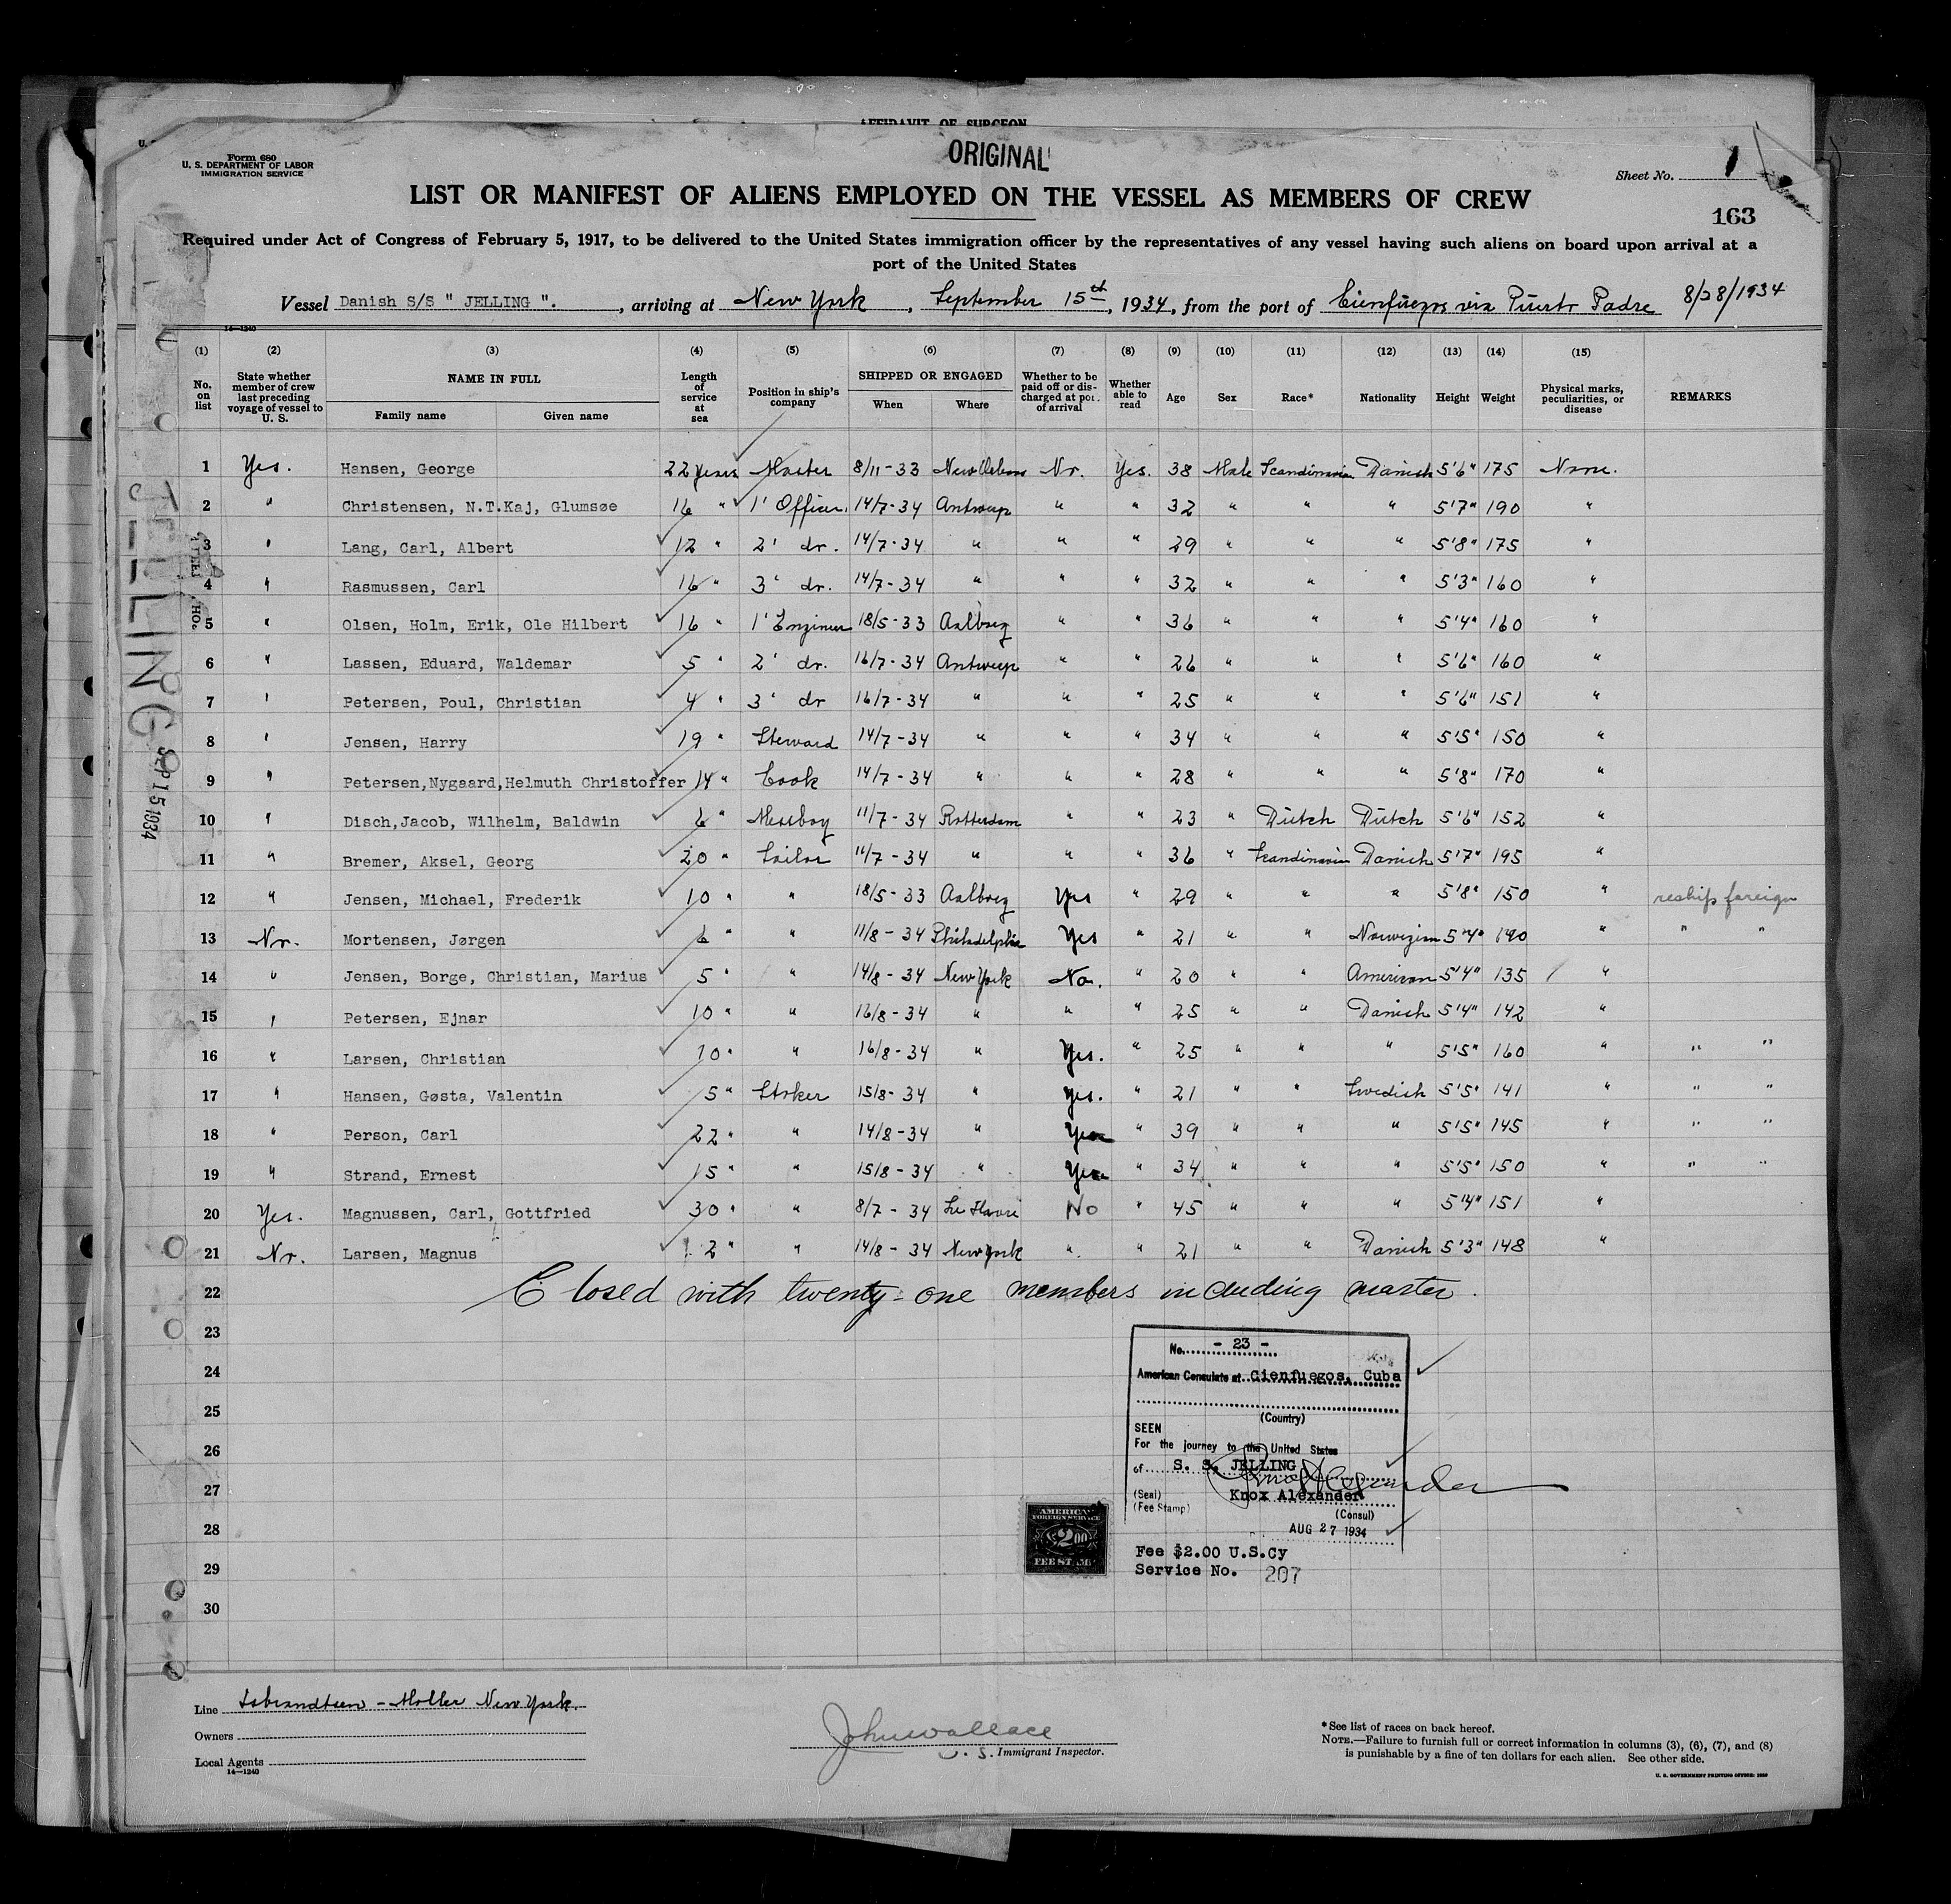 AFFIDAVIT OF SURGEON
ORIGINAL
Form 680
U. S. DEPARTMENT OF LABOR
IMMIGRATION SERVICE
Sheet No. 1
LIST OR MANIFEST OF ALIENS EMPLOYED ON THE VESSEL AS MEMBERS OF CREW
163
Required under Act of Congress of February 5, 1917, to be delivered to the United States immigration officer by the representatives of any vessel having such aliens on board upon arrival at a
port of the United States
Vessel Danish S/S " JELLING ". , arriving at New York , September 15th , 1934, from the port of Cienfuegos via Puerto Padre 8/28/1934
14—1240
(1) (2) (3) (4) (5) (6) (7) (8) (9) (10) (11) (12) (13) (14) (15)
No. on list State whether member of crew last preceding voyage of vessel to U. S. NAME IN FULL Family name Given name Length of service at sea Position in ship's company SHIPPED OR ENGAGED When Where Whether to be paid off or discharged at port of arrival Whether able to read Age Sex Race* Nationality Height Weight Physical marks, peculiarities, or disease REMARKS
1 Yes. Hansen, George 22 years Master 8/11-33 New Orleans No. Yes. 38 Male Scandinavian Danish 5'6" 175 None.
2 " Christensen, N.T.Kaj, Glumsøe 16 " 1' Officer. 14/7-34 Antwerp " " 32 " " " 5'7" 190 "
3 " Lang, Carl, Albert 12 " 2' do. 14/7-34 " " " 29 " " " 5'8" 175 "
4 " Rasmussen, Carl 16 " 3' do. 14/7-34 " " " 32 " " " 5'3" 160 "
5 " Olsen, Holm, Erik, Ole Hilbert 16 " 1' Engineer 18/5-33 Aalborg " " 36 " " " 5'4" 160 "
6 " Lassen, Eduard, Waldemar 5 " 2' do. 16/7-34 Antwerp " " 26 " " " 5'6" 160 "
7 " Petersen, Poul, Christian 4 " 3' do 16/7-34 " " " 25 " " " 5'6" 151 "
8 " Jensen, Harry 19 " Steward 14/7-34 " " " 34 " " " 5'5" 150 "
9 " Petersen,Nygaard,Helmuth Christoffer 14 " Cook 14/7-34 " " " 28 " " " 5'8" 170 "
10 " Disch,Jacob, Wilhelm, Baldwin 6 " Messboy 11/7-34 Rotterdam " " 23 " Dutch Dutch 5'6" 152 "
11 " Bremer, Aksel, Georg 20 " Sailor 11/7-34 " " " 36 " Scandinavian Danish 5'7" 195 "
12 " Jensen, Michael, Frederik 10 " " 18/5-33 Aalborg Yes " 29 " " " 5'8" 150 " reship foreign
13 No. Mortensen, Jørgen 6 " " 11/8-34 Philadelphia Yes " 21 " " Norwegian 5'4" 140 " " "
14 " Jensen, Borge, Christian, Marius 5 " " 14/8-34 New York No. " 20 " " American 5'4" 135 "
15 " Petersen, Ejnar 10 " " 16/8-34 " " " 25 " " Danish 5'4" 142 "
16 " Larsen, Christian 10 " " 16/8-34 " Yes. " 25 " " " 5'5" 160 " " "
17 " Hansen, Gøsta, Valentin 5 " Stoker 15/8-34 " Yes. " 21 " " Swedish 5'5" 141 " " "
18 " Person, Carl 22 " " 14/8-34 " Yes " 39 " " " 5'5" 145 " " "
19 " Strand, Ernest 15 " " 15/8-34 " Yes " 34 " " " 5'5" 150 " " "
20 Yes. Magnussen, Carl, Gottfried 30 " " 8/7-34 Le Havre No " 45 " " " 5'4" 151 "
21 No. Larsen, Magnus 2 " " 14/8-34 New York " " 21 " " Danish 5'3" 148 "
22 Closed with twenty-one members including master.
23
24
25
26
27
28
29
30
JELLING
SEP 15 1934
No. - 23 -
American Consulate at Cienfuegos, Cuba
(Country)
SEEN
For the journey to the United States
of S. S. JELLING
Knox Alexander
(Seal) Knox Alexander
(Fee Stamp) (Consul)
AUG 27 1934
AMERICAN
FOREIGN SERVICE
$2.00
FEE STAMP
Fee $2.00 U.S.Cy
Service No. 207
Line Isbrandtsen - Moller New York.
Owners
Local Agents
14—1240
John Wallace
U. S. Immigrant Inspector.
*See list of races on back hereof.
NOTE.—Failure to furnish full or correct information in columns (3), (6), (7), and (8)
is punishable by a fine of ten dollars for each alien. See other side.
U. S. GOVERNMENT PRINTING OFFICE: 1930